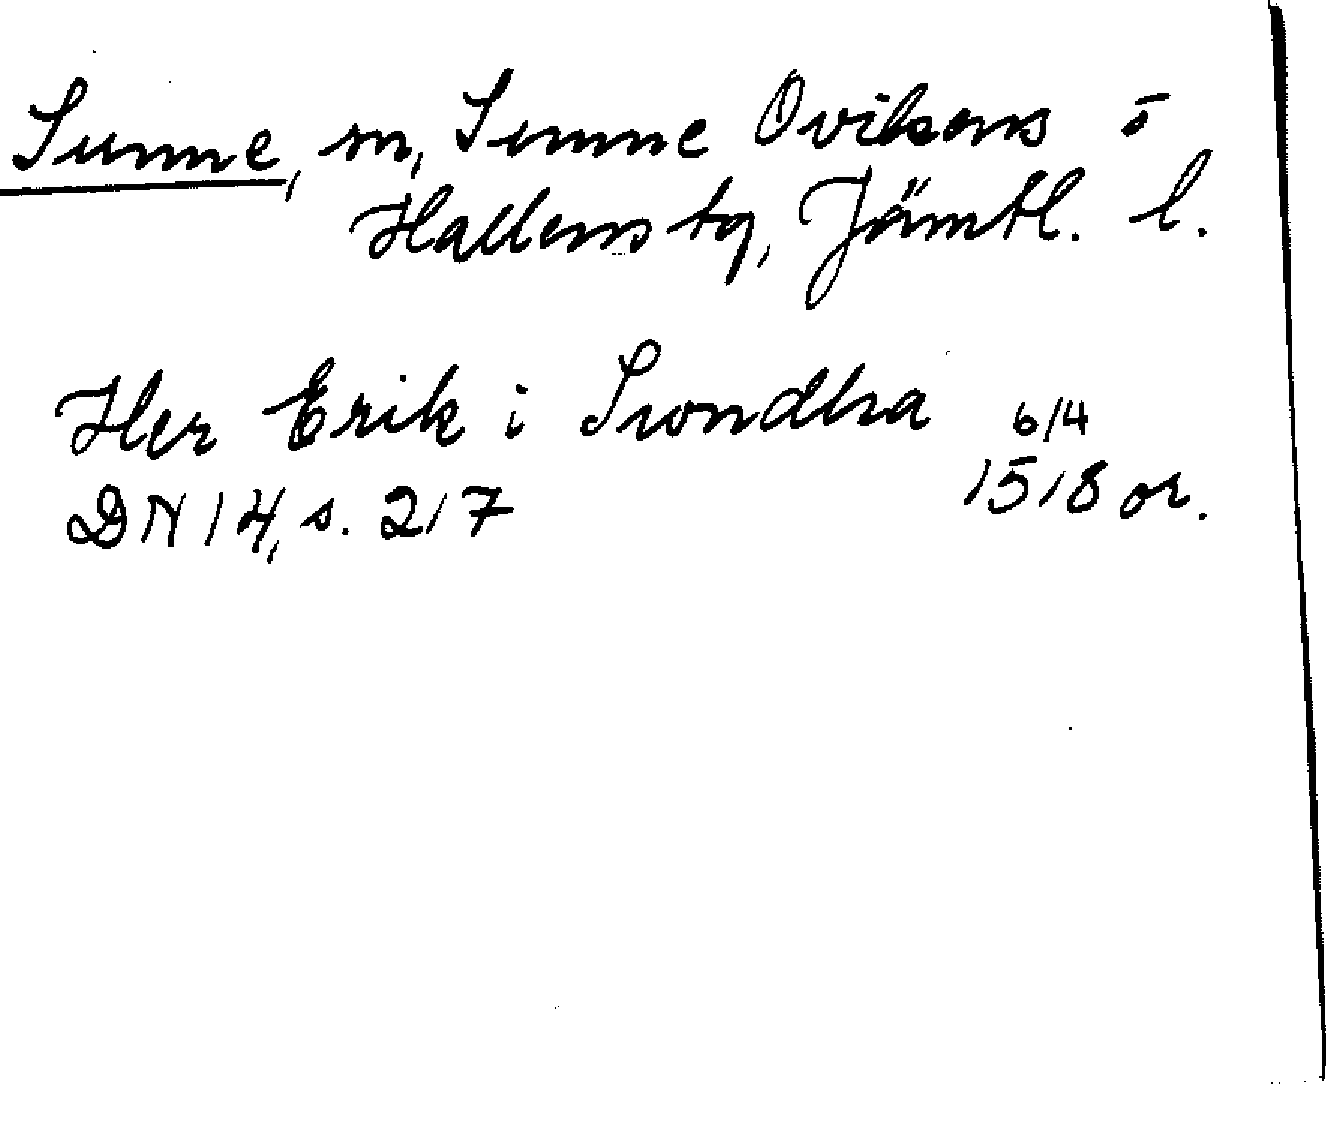 Sunne, sn, Sunne Ovikens o
Hallens tg, Jämtl. l.
Her Erik i Swndha 6/4
DN 14, s. 217 1518 or.